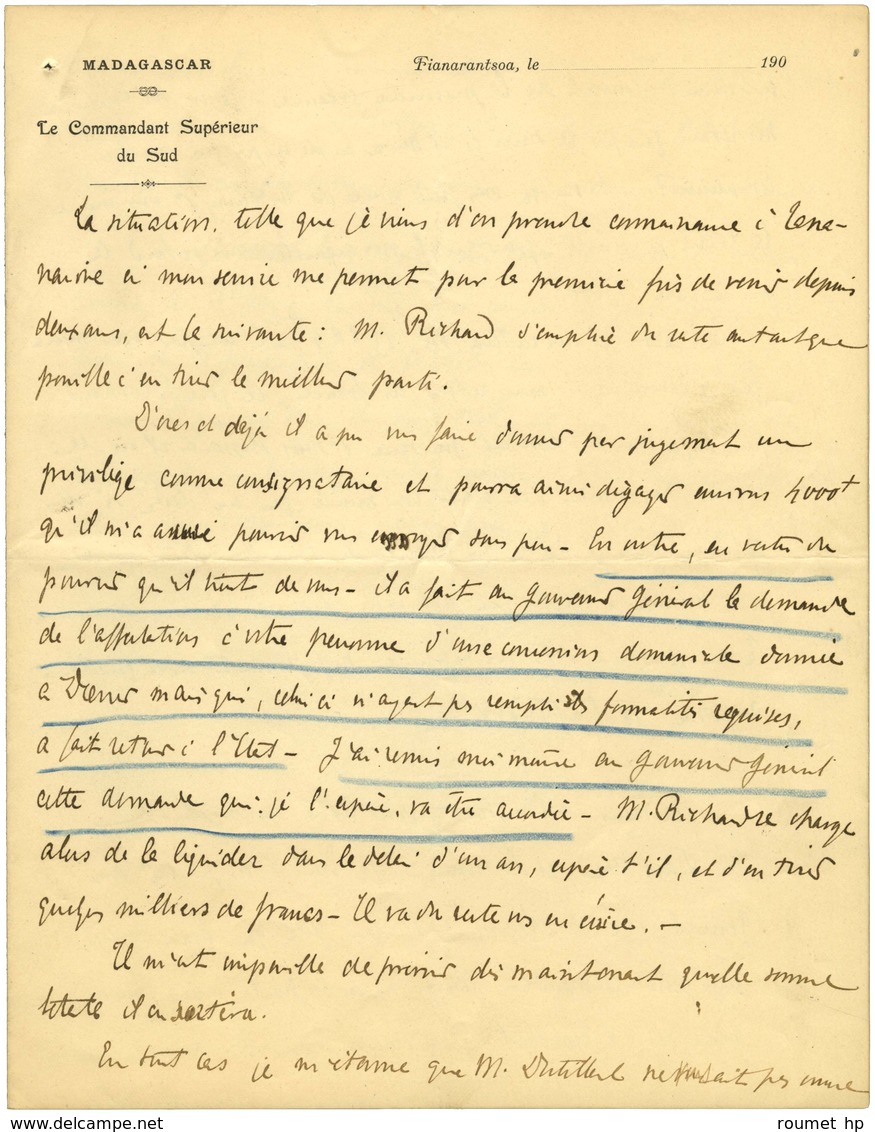 MADAGASCAR
Fianarantsoa, le 190
Le Commandant Supérieur
du Sud
La situation, telle que je viens d'en prendre connaissance à Tana-
narive où mon service me permet pour la première fois de venir depuis
deux ans, est la suivante : M. Richard s'emploie du reste autant que
possible à en tirer le meilleur parti.
D'ores et déjà il a pu vous faire donner par jugement un
privilège comme consignataire et pourra ainsi dégager environ 4000f
qu'il m'a assuré pouvoir vous envoyer sous peu - En outre, en vertu du
pouvoir qu'il tient de vous - il a fait au Gouverneur Général la demande
de l'affectation à votre personne d'une concession domaniale donnée
à mais qui, celui ci n'ayant pas rempli les formalités requises,
a fait retour à l'Etat - J'ai remis moi même au Gouverneur Général
cette demande qui, je l'espère, va être accordée - M. Richard se charge
alors de la liquider dans le délai d'un an, espère t'il, et d'en tirer
quelques milliers de francs - Il va du reste vous en écrire. -
Il m'est impossible de prévoir dès maintenant quelle somme
totale il en sortira.
En tout cas je m'étonne que M. ne vous ait pas encore
roumet hp